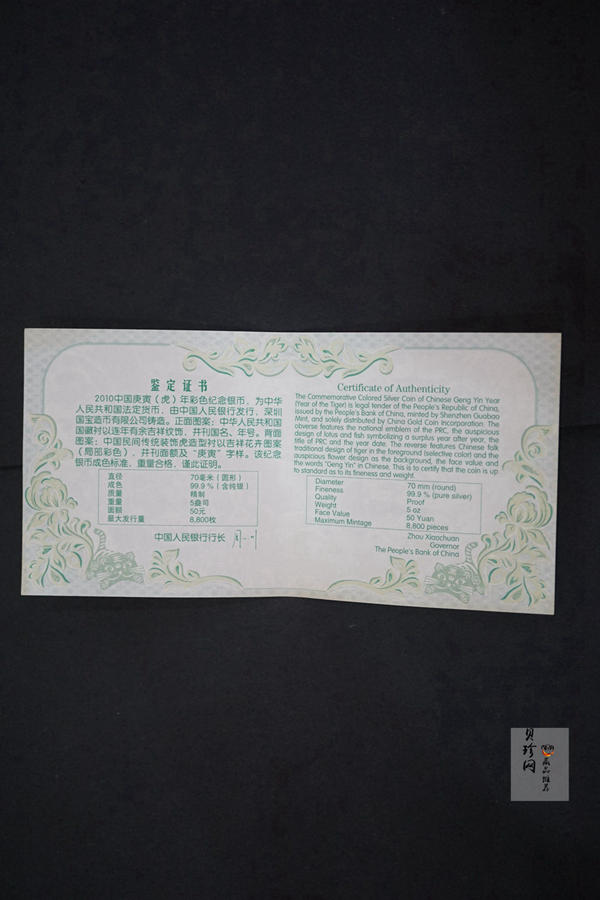 鉴定证书
2010中国庚寅(虎)年彩色纪念银币,为中华
人民共和国法定货币,由中国人民银行发行,深圳
国宝造币有限公司铸造。正面图案:中华人民共和国
国徽衬以连年有余吉祥纹饰,并刊国名、年号。背面
图案:中国民间传统装饰虎造型衬以吉祥花卉图案
(局部彩色),并刊面额及“庚寅”字样。该纪念
银币成色标准,重量合格,谨此证明。
直径 70毫米(圆形)
成色 99.9%(含纯银)
质量 精制
重量 5盎司
面额 50元
最大发行量 8,800枚
中国人民银行行长
Certificate of Authenticity
The Commemorative Colored Silver Coin of Chinese Geng Yin Year
(Year of the Tiger) is legal tender of the People's Republic of China,
issued by the People's Bank of China, minted by Shenzhen Guobao
Mint, and solely distributed by China Gold Coin Incorporation. The
obverse features the national emblem of the PRC, the auspicious
design of lotus and fish symbolizing a surplus year after year, the
title of PRC and the year date. The reverse features Chinese folk
traditional design of tiger in the foreground (selective color) and the
auspicious flower design as the background, the face value and
the words "Geng Yin" in Chinese. This is to certify that the coin is up
to standard as to its fineness and weight.
Diameter 70 mm (round)
Fineness 99.9 % (pure silver)
Quality Proof
Weight 5 oz
Face Value 50 Yuan
Maximum Mintage 8,800 pieces
Zhou Xiaochuan
Governor
The People's Bank of China
贝珍网
藏品推荐